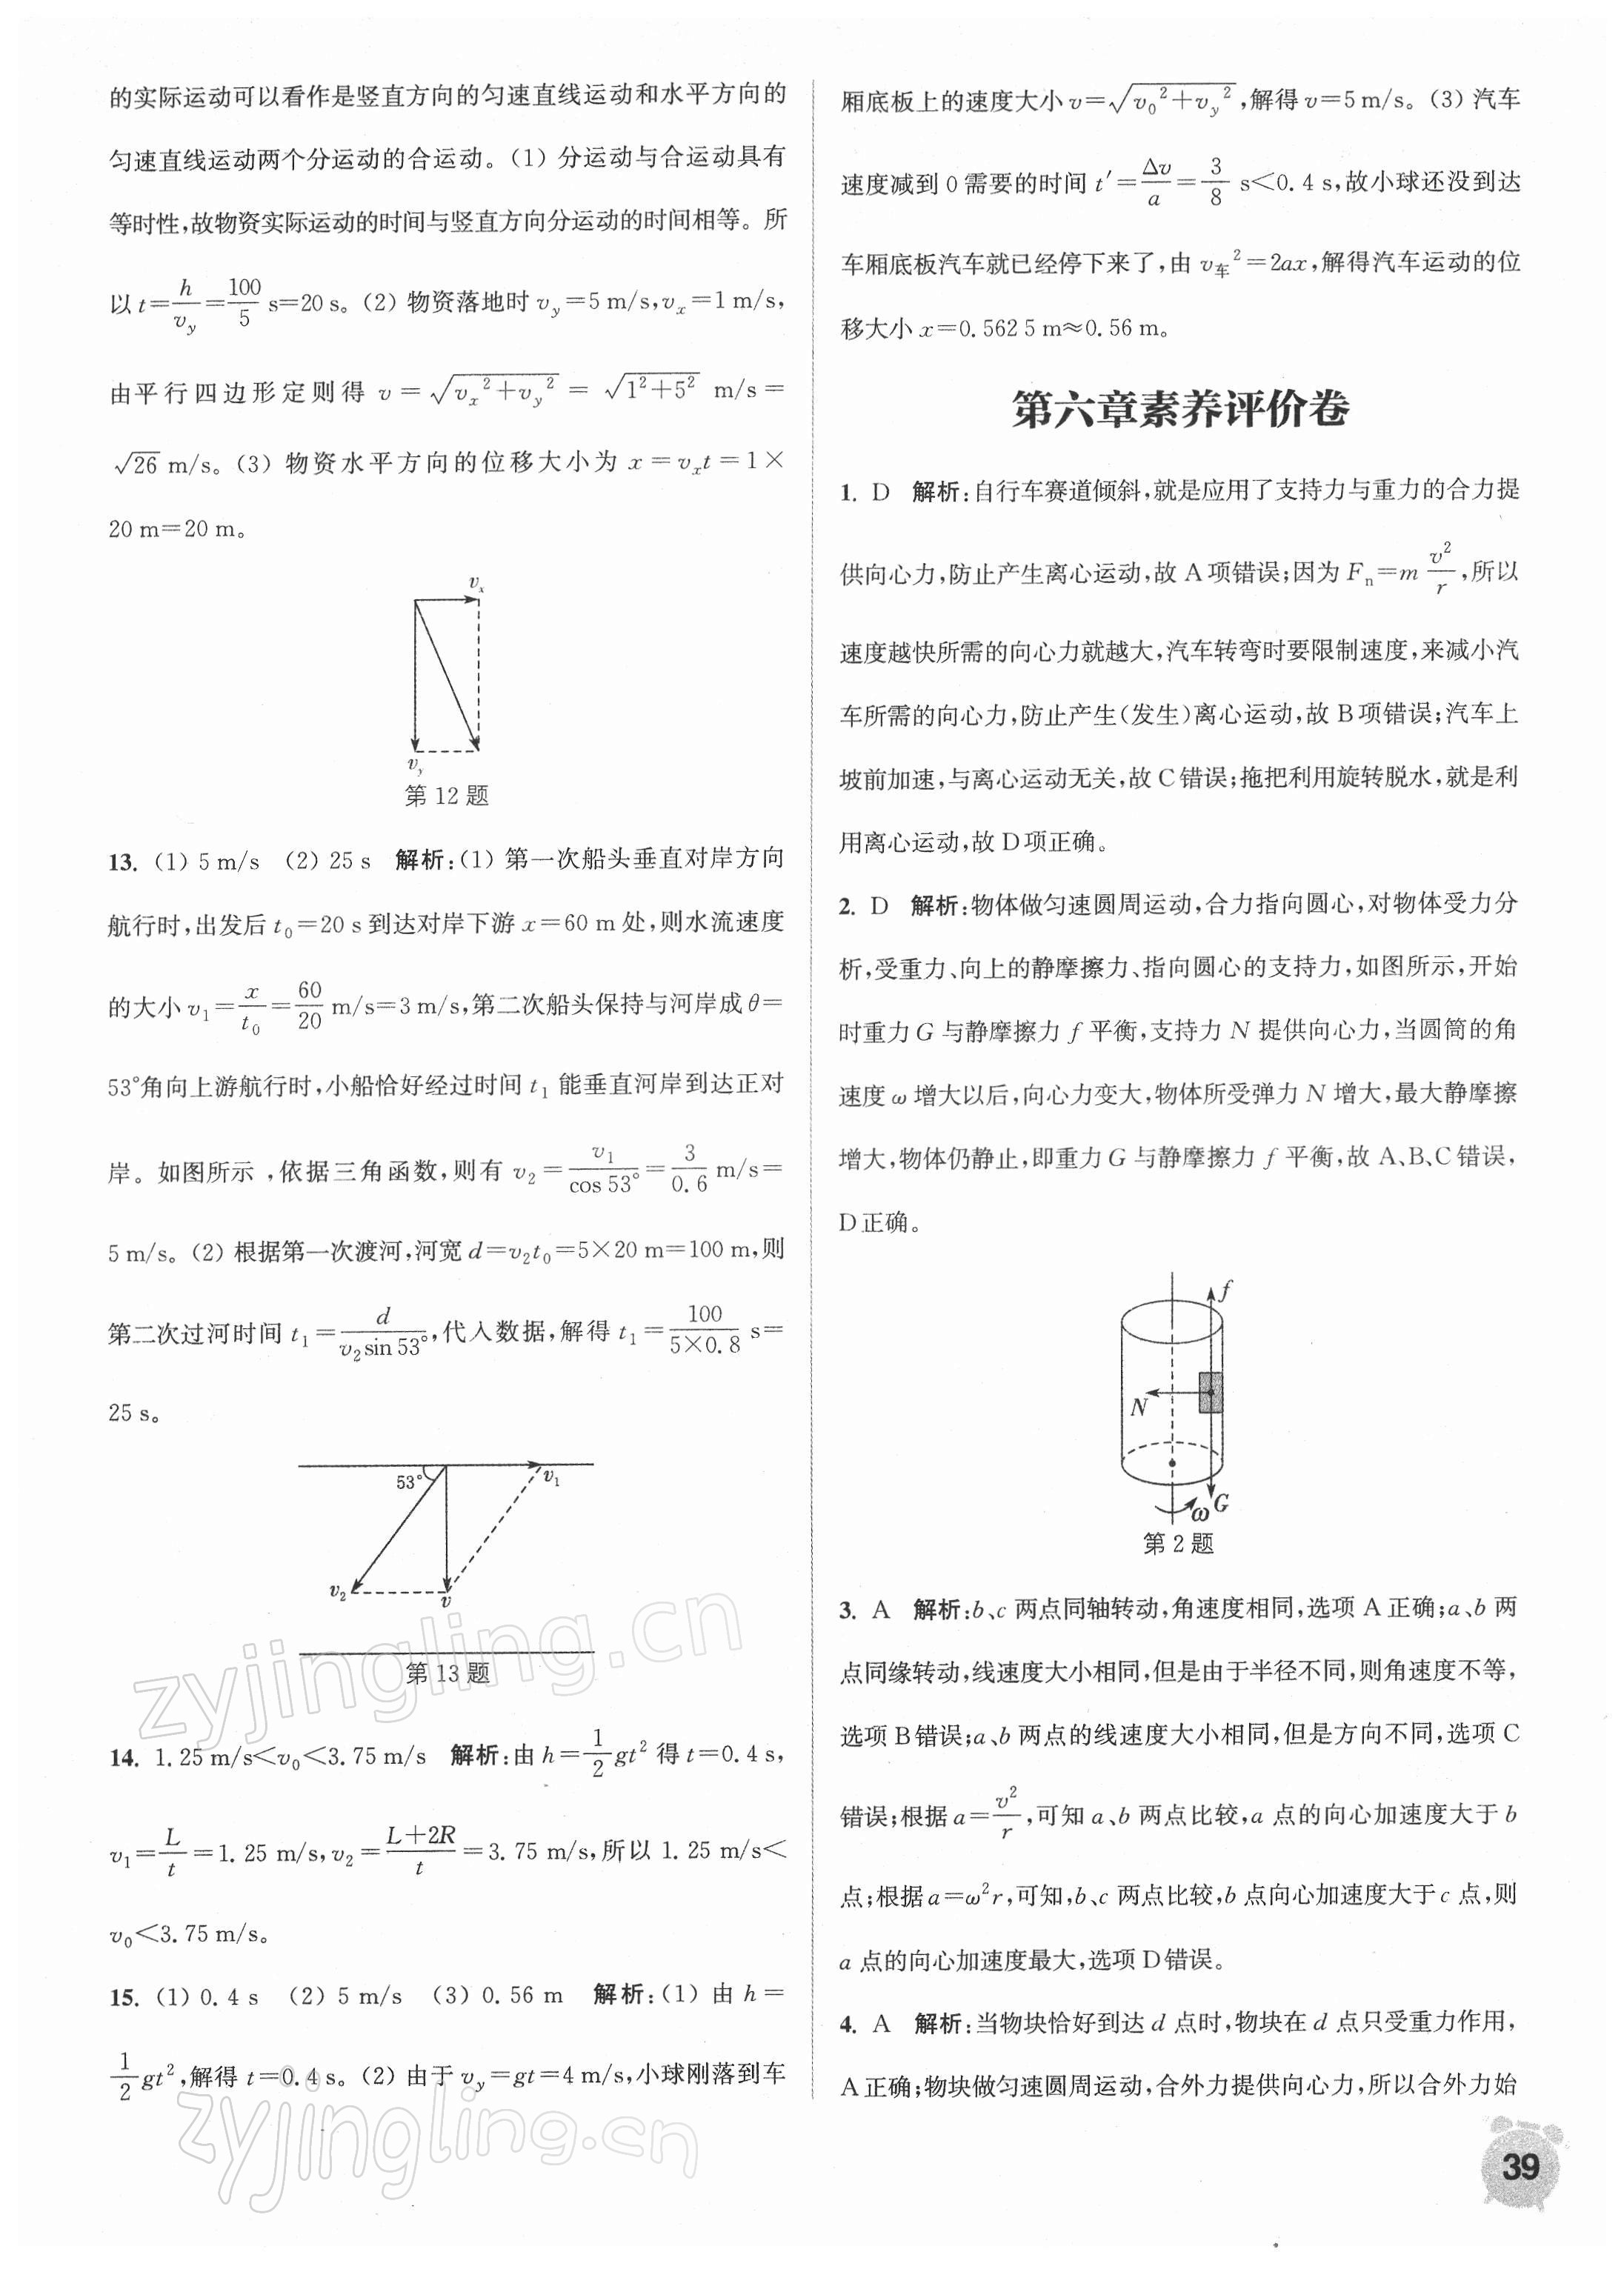 的实际运动可以看作是竖直方向的匀速直线运动和水平方向的
匀速直线运动两个分运动的合运动。(1) 分运动与合运动具有
等时性,故物资实际运动的时间与竖直方向分运动的时间相等。所
以 t=h/v_y=100/5 s=20 s。(2) 物资落地时 v_y=5 m/s,v_x=1 m/s,
由平行四边形定则得 v=√(v_x²+v_y²)=√(1²+5²) m/s=
√26 m/s。(3) 物资水平方向的位移大小为 x=v_xt=1×
20 m=20 m。
v_x
v_y
第 12 题
13. (1) 5 m/s (2) 25 s 解析:(1) 第一次船头垂直对岸方向
航行时,出发后 t₀=20 s 到达对岸下游 x=60 m 处,则水流速度
的大小 v₁=x/t₀=60/20 m/s=3 m/s,第二次船头保持与河岸成 θ=
53°角向上游航行时,小船恰好经过时间 t₁ 能垂直河岸到达正对
岸。如图所示 ,依据三角函数,则有 v₂=v₁/cos 53°=3/0.6 m/s=
5 m/s。(2) 根据第一次渡河,河宽 d=v₂t₀=5×20 m=100 m,则
第二次过河时间 t₁=d/(v₂sin 53°),代入数据,解得 t₁=100/(5×0.8) s=
25 s。
53°
v₁
v₂
v
第 13 题
14. 1.25 m/s<v₀<3.75 m/s 解析:由 h=1/2 gt² 得 t=0.4 s,
v₁=L/t=1.25 m/s,v₂=(L+2R)/t=3.75 m/s,所以 1.25 m/s<
v₀<3.75 m/s。
15. (1) 0.4 s (2) 5 m/s (3) 0.56 m 解析:(1) 由 h=
1/2 gt²,解得 t=0.4 s。(2) 由于 v_y=gt=4 m/s,小球刚落到车
厢底板上的速度大小 v=√(v₀²+v_y²),解得 v=5 m/s。(3) 汽车
速度减到 0 需要的时间 t′=Δv/a=3/8 s<0.4 s,故小球还没到达
车厢底板汽车就已经停下来了,由 v车²=2ax,解得汽车运动的位
移大小 x=0.562 5 m≈0.56 m。
第六章素养评价卷
1. D 解析:自行车赛道倾斜,就是应用了支持力与重力的合力提
供向心力,防止产生离心运动,故 A 项错误;因为 Fₙ=m v²/r,所以
速度越快所需的向心力就越大,汽车转弯时要限制速度,来减小汽
车所需的向心力,防止产生(发生)离心运动,故 B 项错误;汽车上
坡前加速,与离心运动无关,故 C 错误;拖把利用旋转脱水,就是利
用离心运动,故 D 项正确。
2. D 解析:物体做匀速圆周运动,合力指向圆心,对物体受力分
析,受重力、向上的静摩擦力、指向圆心的支持力,如图所示,开始
时重力 G 与静摩擦力 f 平衡,支持力 N 提供向心力,当圆筒的角
速度 ω 增大以后,向心力变大,物体所受弹力 N 增大,最大静摩擦
增大,物体仍静止,即重力 G 与静摩擦力 f 平衡,故 A、B、C 错误,
D 正确。
f
N
ω
G
第 2 题
3. A 解析:b、c 两点同轴转动,角速度相同,选项 A 正确;a、b 两
点同缘转动,线速度大小相同,但是由于半径不同,则角速度不等,
选项 B 错误;a、b 两点的线速度大小相同,但是方向不同,选项 C
错误;根据 a=v²/r,可知 a、b 两点比较,a 点的向心加速度大于 b
点;根据 a=ω²r,可知,b、c 两点比较,b 点向心加速度大于 c 点,则
a 点的向心加速度最大,选项 D 错误。
4. A 解析:当物块恰好到达 d 点时,物块在 d 点只受重力作用,
A 正确;物块做匀速圆周运动,合外力提供向心力,所以合外力始
39
zyjingling.cn
zyjingling.cn